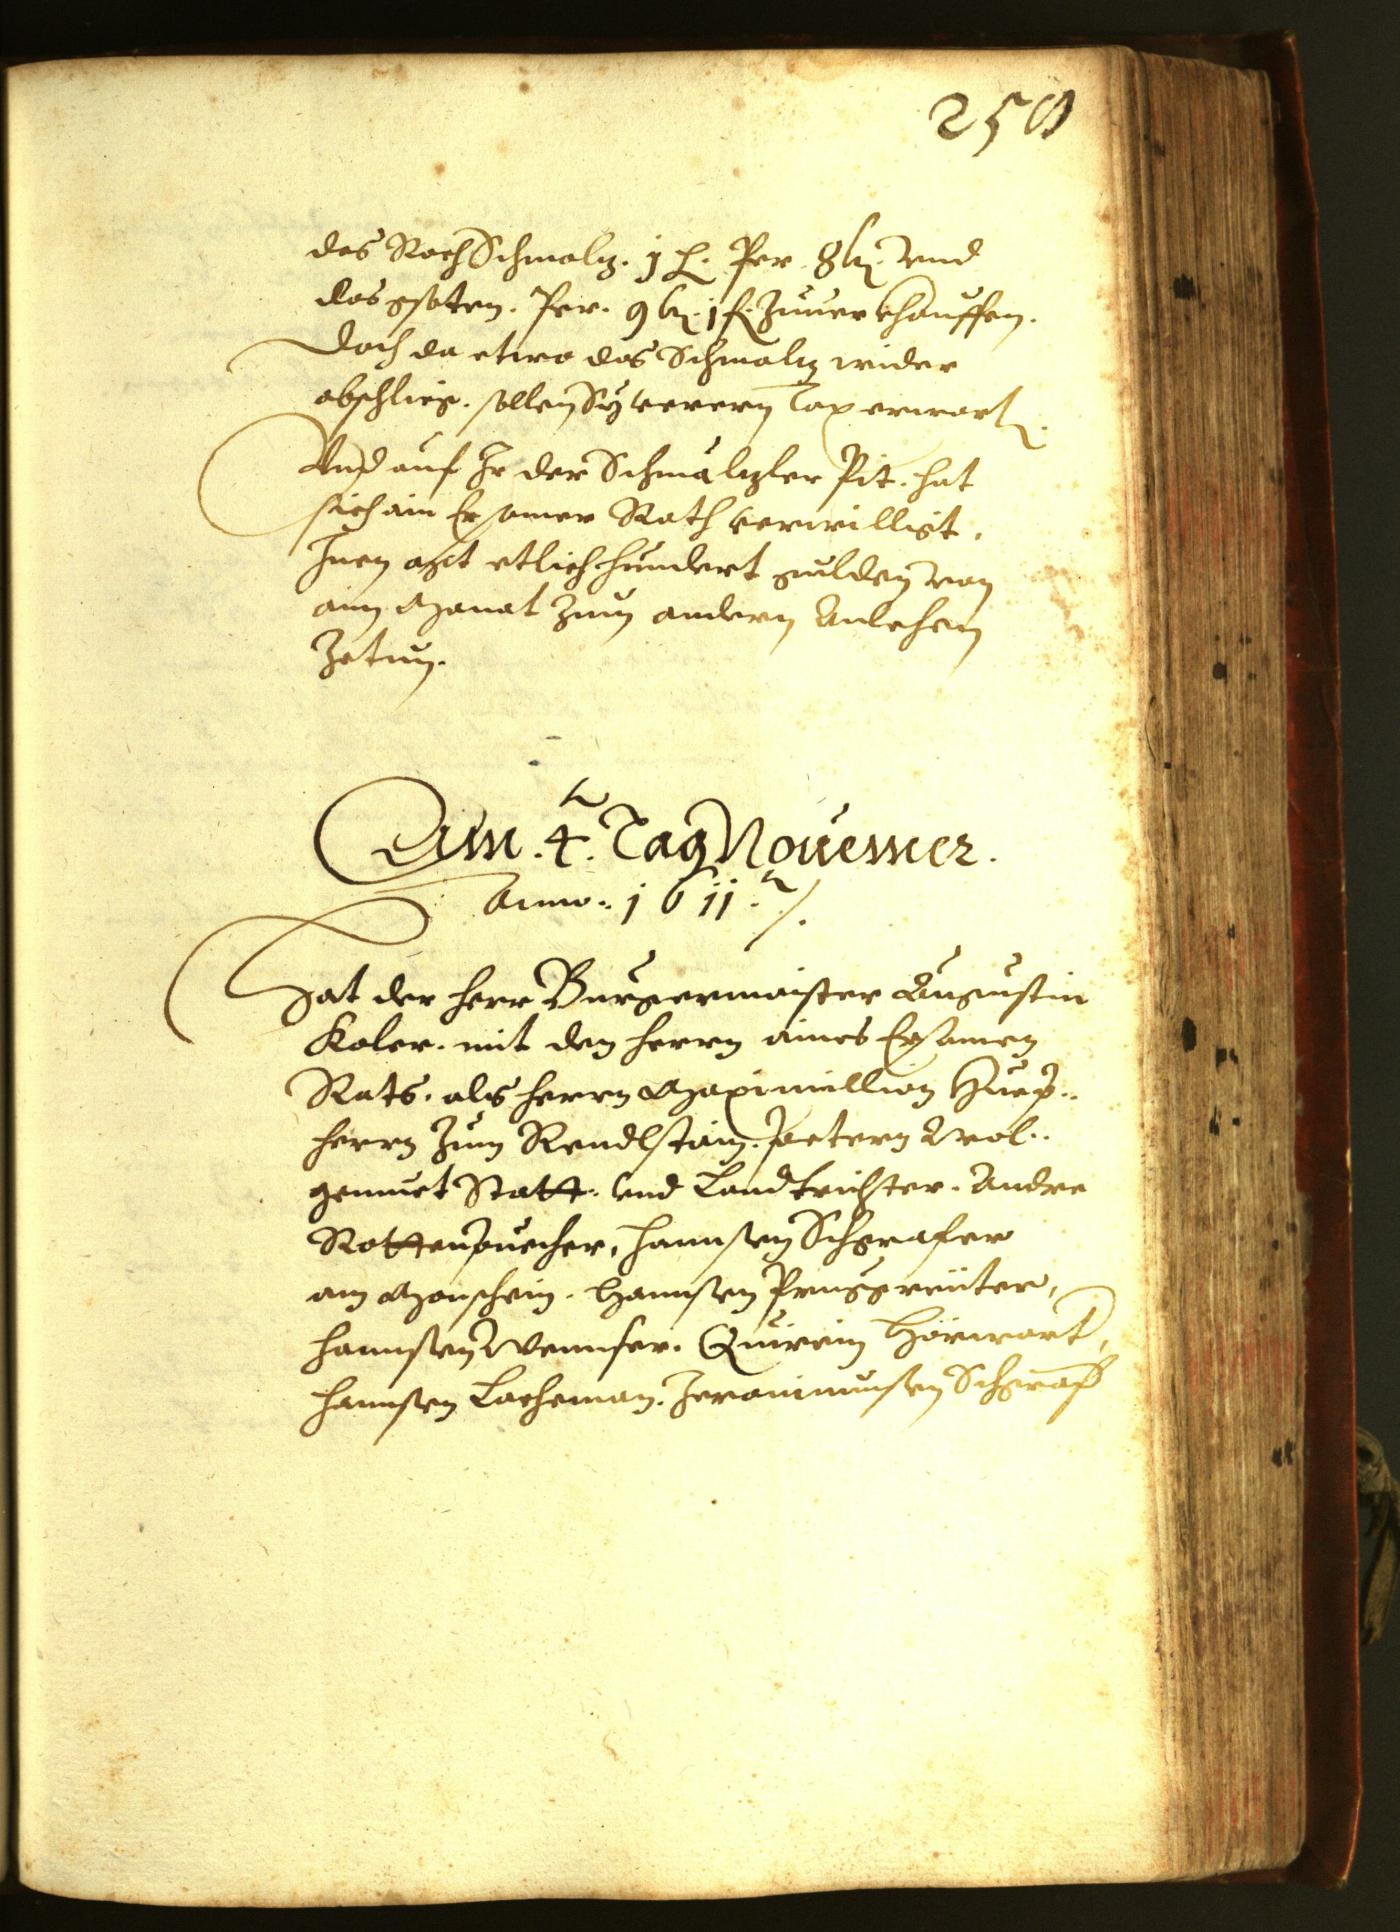 250
das Roch Schmalz. j h. Per 8 kr. vnd
das gsoten. Per. 9 kr. j f. Zuuerkhauffen.
Doch da etwo das Schmalz wider
abschlieg. sollen Sy verern Tax erwartn.
Vnd auf Ir der Schmalzler Pit. hat
sich ain Ersamer Rath verwilligt,
Inen etlich hundert gulden von
aim Monat Zum andern Anlehen
Zetun.
Am. 4. Tag Nouember.
Anno. 1611.
Hat der herr Burgermaister Augustin
Koler. mit den herrn aines Ersamen
Rats. als herrn Maximillion Hueb..
herrn Zum Rendlstain. Petern Wol..
gemuet Statt. vnd Landtrichter. Andre
Rottenpuecher, hannsen Schgrafer
am Monschein. Hannsen Pruggreiter,
hannsen Wennser. Quirein Hörwart,
hannsen Lacheman. Jeronimussen Schgraf